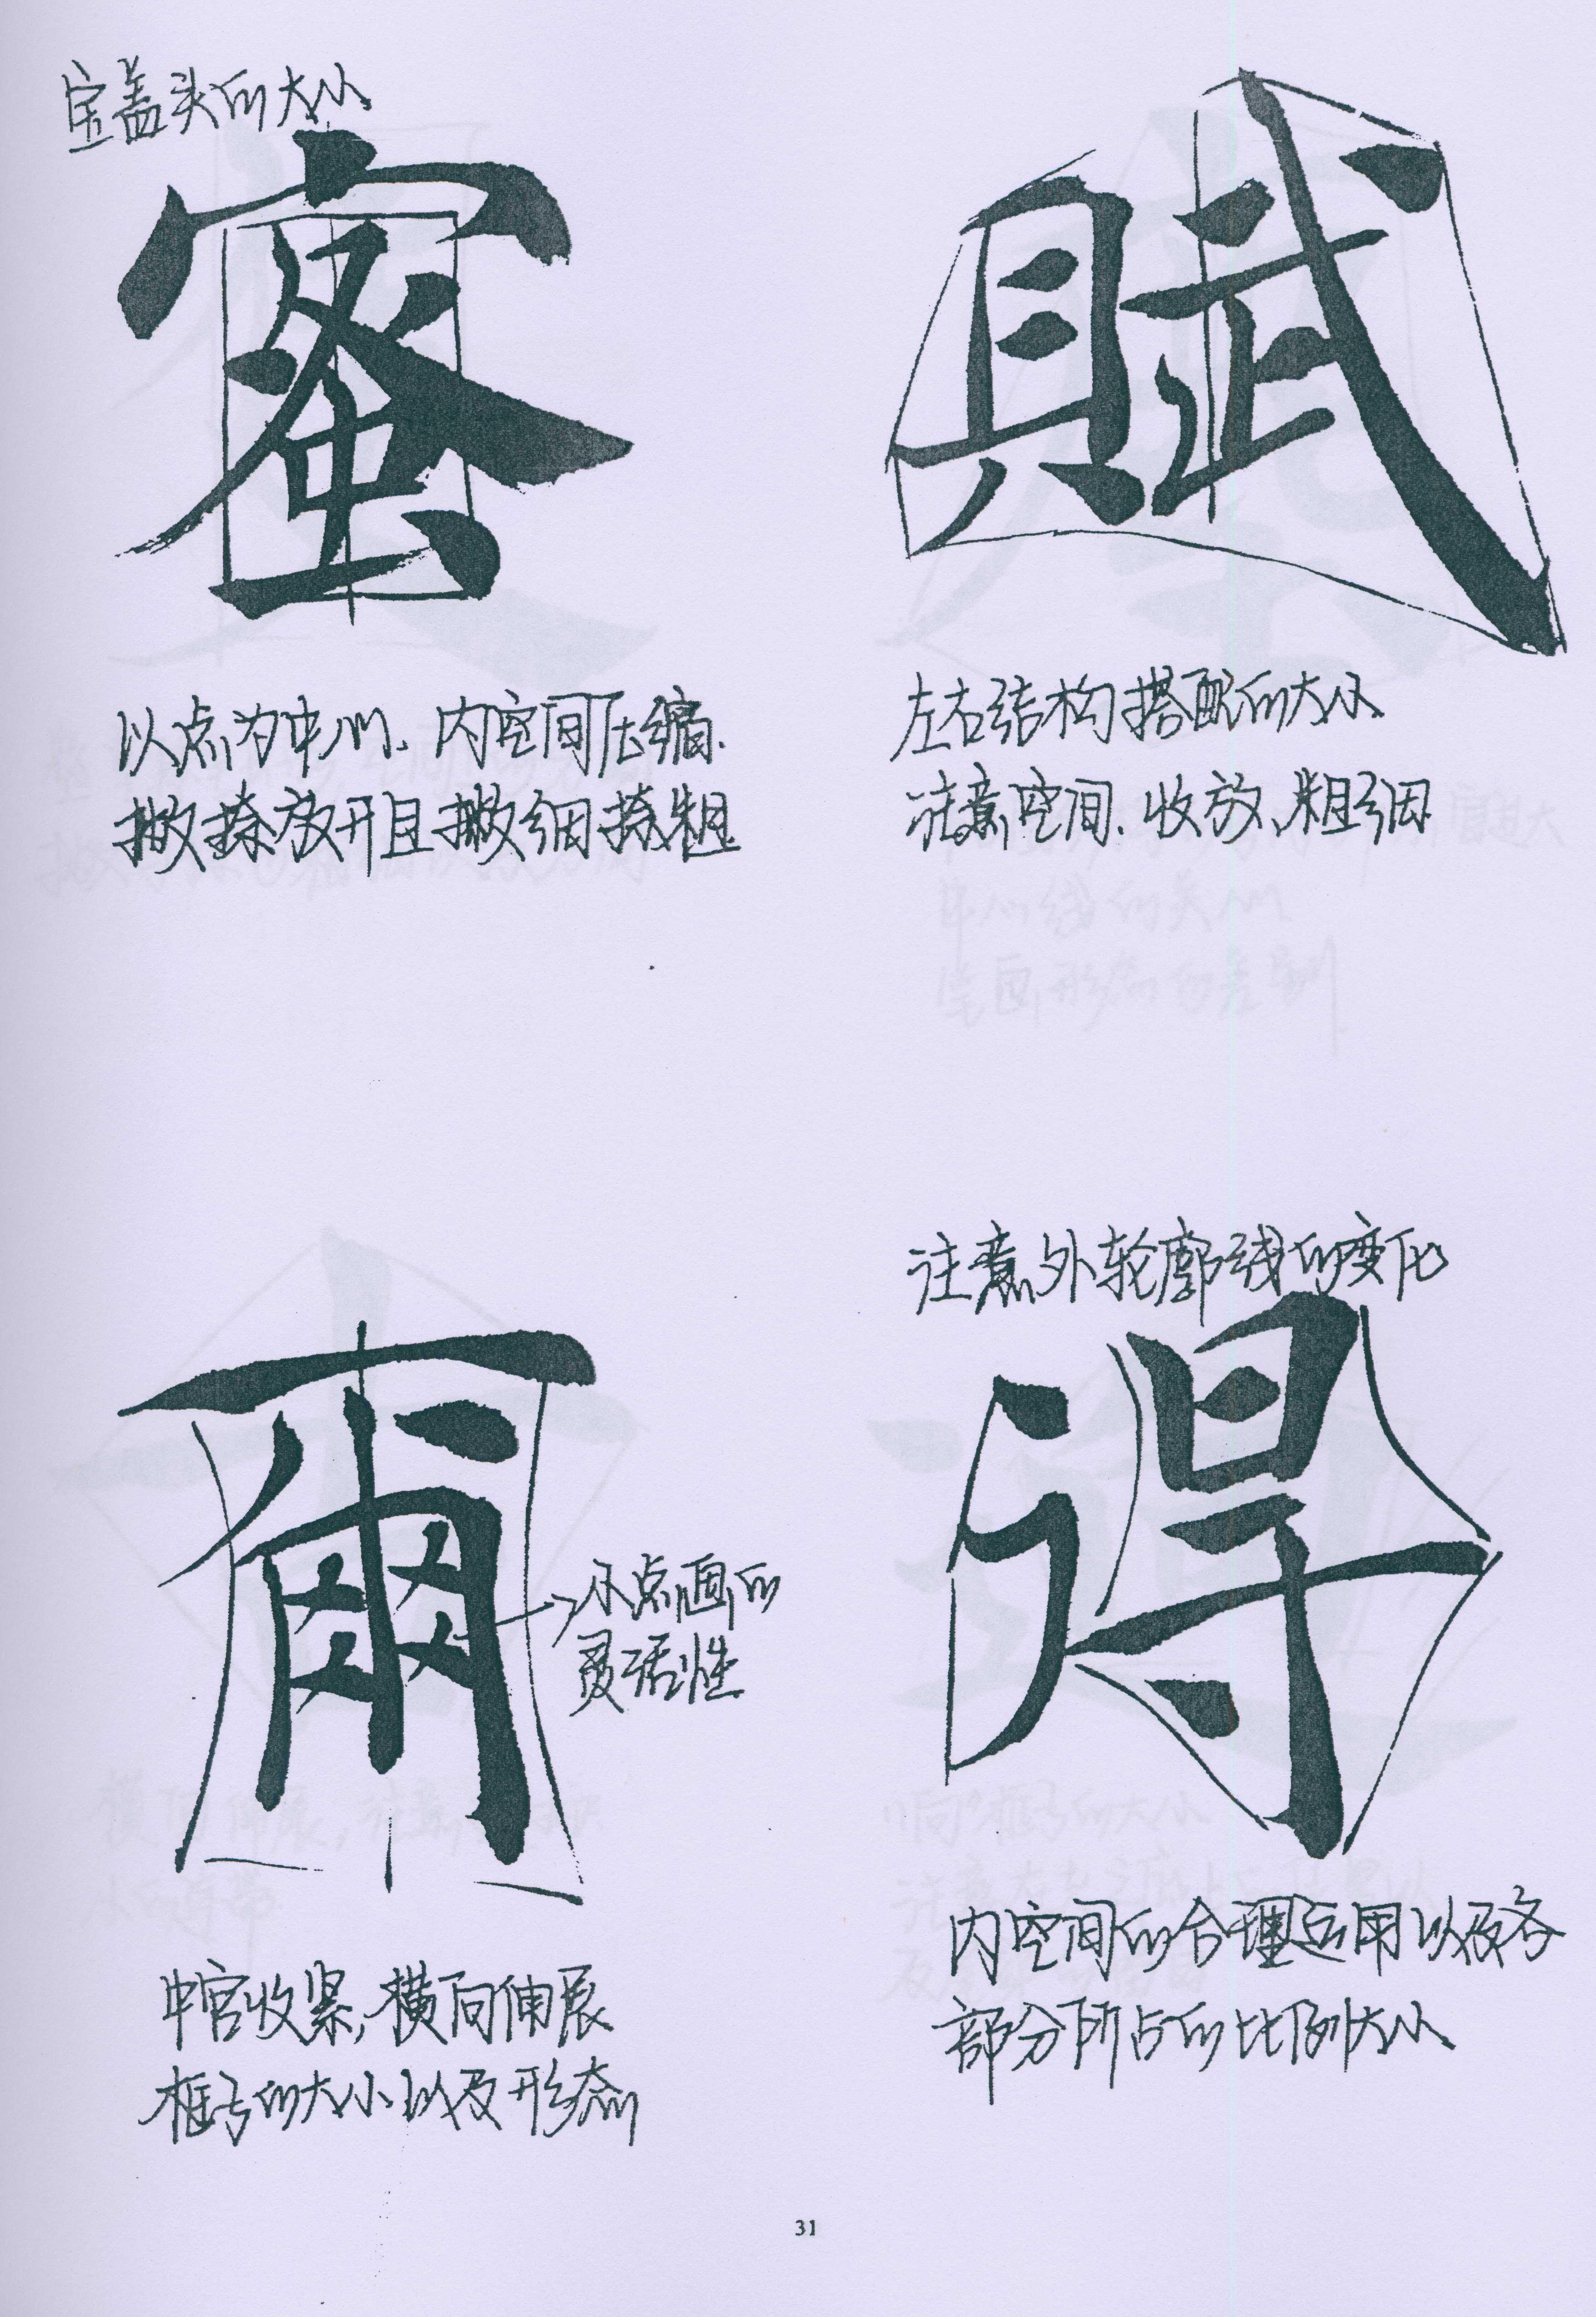 宝盖头的大小
蜜
以点为中心.内空间压缩.
撇捺放开且撇细捺粗
賦
左右结构搭配的大小
注意空间.收放、粗细
爾
小点画的
灵活性
中宫收紧,横向伸展
框与的大小以及形态
注意外轮廓线的变化
得
内空间的合理运用以及各
部分所占的比例大小
31